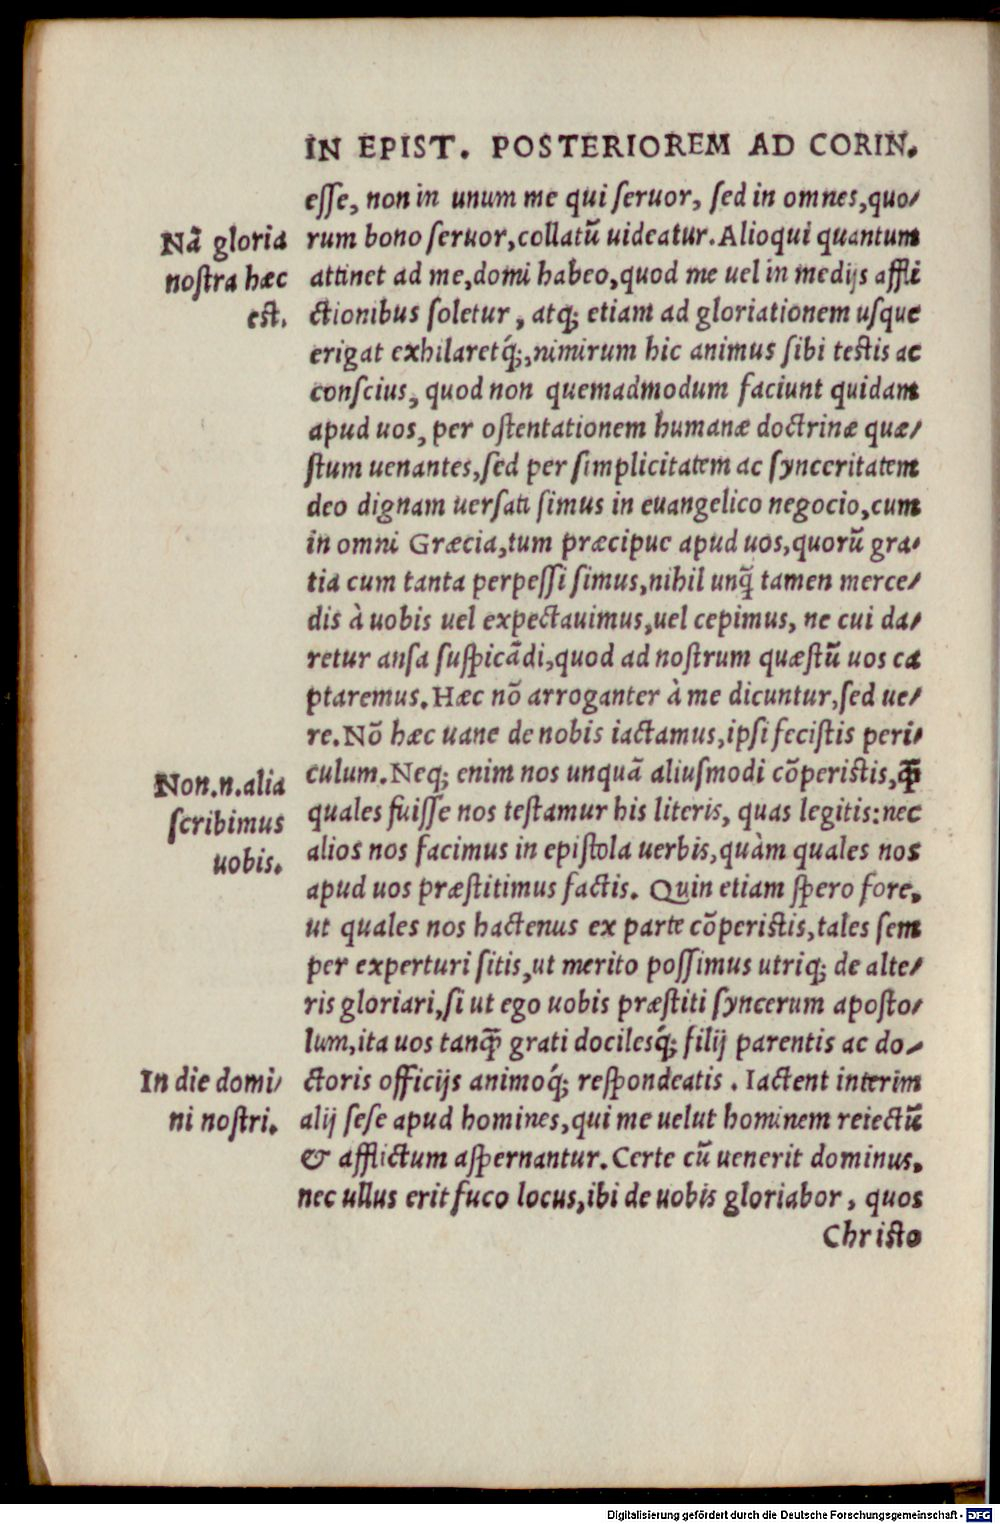 IN EPIST. POSTERIOREM AD CORIN.
eſſe, non in unum me qui ſeruor, ſed in omnes, quo/
rum bono ſeruor, collatũ uideatur. Alioqui quantum
attinet ad me, domi habeo, quod me uel in medijs affli
ctionibus ſoletur, atq; etiam ad gloriationem uſque
erigat exhilaretq́;, nimirum hic animus ſibi teſtis ac
conſcius, quod non quemadmodum faciunt quidam
apud uos, per oſtentationem humanæ doctrinæ quæ/
ſtum uenantes, ſed per ſimplicitatem ac ſynceritatem
deo dignam uerſati ſimus in euangelico negocio, cum
in omni Græcia, tum præcipue apud uos, quorũ gra/
tia cum tanta perpeſſi ſimus, nihil unq̃ tamen merce/
dis à uobis uel expectauimus, uel cepimus, ne cui da/
retur anſa ſuſpicãdi, quod ad noſtrum quæſtũ uos ca
ptaremus. Hæc nõ arroganter à me dicuntur, ſed ue/
re. Nõ hæc uane de nobis iactamus, ipſi feciſtis peri/
culum. Neq; enim nos unquã aliuſmodi cõperiſtis, q̃
quales fuiſſe nos teſtamur his literis, quas legitis: nec
alios nos facimus in epiſtola uerbis, quàm quales nos
apud uos præſtitimus factis. Quin etiam ſpero fore,
ut quales nos hactenus ex parte cõperiſtis, tales ſem
per experturi ſitis, ut merito poſſimus utriq; de alte/
ris gloriari, ſi ut ego uobis præſtiti ſyncerum apoſto/
lum, ita uos tanq̃ grati docilesq́; filij parentis ac do/
ctoris officijs animoq́; reſpondeatis. Iactent interim
alij ſeſe apud homines, qui me uelut hominem reiectũ
& afflictum aſpernantur. Certe cũ uenerit dominus,
nec ullus erit fuco locus, ibi de uobis gloriabor, quos
Chriſto
Nã gloria
noſtra hæc
eſt.
Non.n.alia
ſcribimus
uobis.
In die domi/
ni noſtri.
Digitalisierung gefördert durch die Deutsche Forschungsgemeinschaft - DFG